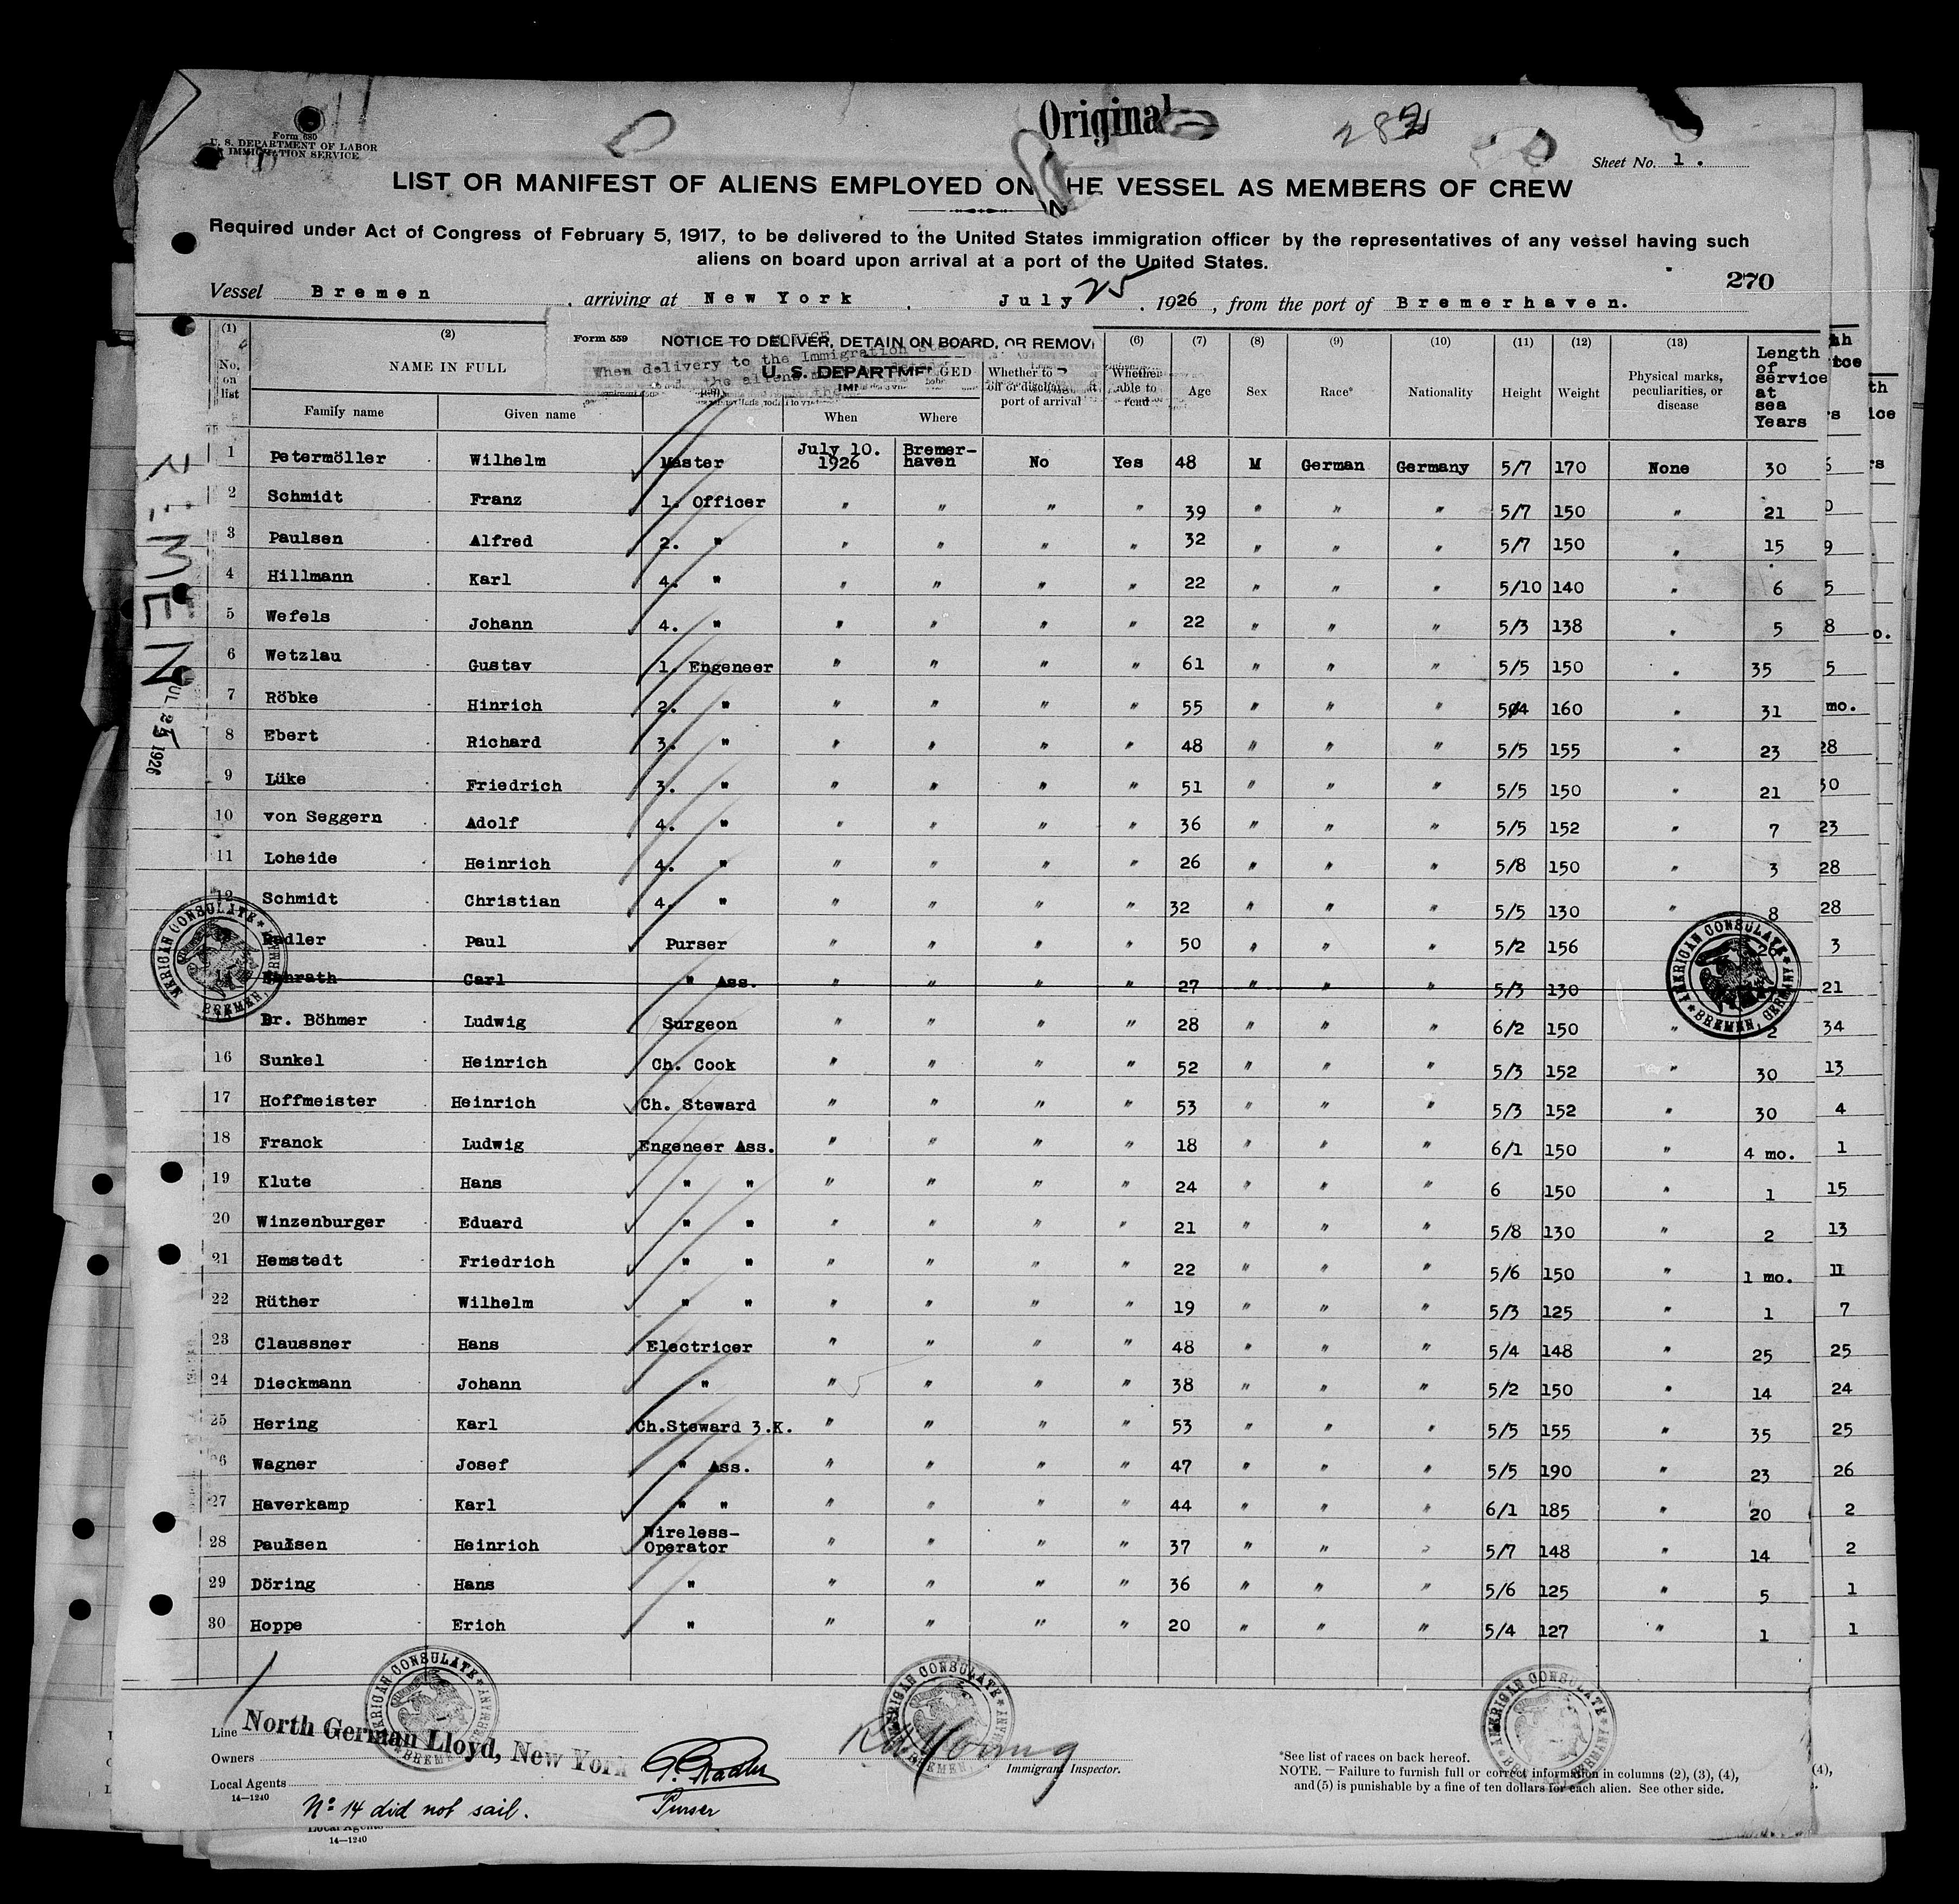 Original
282
Form 680
U. S. DEPARTMENT OF LABOR
IMMIGRATION SERVICE
Sheet No. 1.
LIST OR MANIFEST OF ALIENS EMPLOYED ON THE VESSEL AS MEMBERS OF CREW
Required under Act of Congress of February 5, 1917, to be delivered to the United States immigration officer by the representatives of any vessel having such
aliens on board upon arrival at a port of the United States.
270
Vessel Bremen, arriving at New York, July 25, 1926, from the port of Bremerhaven.
Form 559 NOTICE TO DELIVER, DETAIN ON BOARD, OR REMOV
NOTICE
When delivery to the Immigration
U. S. DEPARTME
(1) (2) (6) (7) (8) (9) (10) (11) (12) (13)
No. on list NAME IN FULL Family name Given name GED When Where Whether to port of arrival Whether able to read Age Sex Race* Nationality Height Weight Physical marks, peculiarities, or disease Length of service at sea Years
1 Petermöller Wilhelm Master July 10. 1926 Bremer-haven No Yes 48 M German Germany 5/7 170 None 30
2 Schmidt Franz 1. Officer " " " " 39 " " " 5/7 150 " 21
3 Paulsen Alfred 2. " " " " " 32 " " " 5/7 150 " 15
4 Hillmann Karl 4. " " " " " 22 " " " 5/10 140 " 6
5 Wefels Johann 4. " " " " " 22 " " " 5/3 138 " 5
6 Wetzlau Gustav 1. Engeneer " " " " 61 " " " 5/5 150 " 35
7 Röbke Hinrich 2. " " " " " 55 " " " 5/4 160 " 31
8 Ebert Richard 3. " " " " " 48 " " " 5/5 155 " 23
9 Lüke Friedrich 3. " " " " " 51 " " " 5/5 150 " 21
10 von Seggern Adolf 4. " " " " " 36 " " " 5/5 152 " 7
11 Loheide Heinrich 4. " " " " " 26 " " " 5/8 150 " 3
12 Schmidt Christian 4. " " " " " 32 " " " 5/5 130 " 8
Radler Paul Purser " " " " 50 " " " 5/2 156
Carl " Ass. " " " " 27 " " " 5/3 130
Dr. Böhmer Ludwig Surgeon " " " " 28 " " " 6/2 150 " 2
16 Sunkel Heinrich Ch. Cook " " " " 52 " " " 5/3 152 " 30
17 Hoffmeister Heinrich Ch. Steward " " " " 53 " " " 5/3 152 " 30
18 Franck Ludwig Engeneer Ass. " " " " 18 " " " 6/1 150 " 4 mo.
19 Klute Hans " " " " " " 24 " " " 6 150 " 1
20 Winzenburger Eduard " " " " " " 21 " " " 5/8 130 " 2
21 Hemstedt Friedrich " " " " " " 22 " " " 5/6 150 " 1 mo.
22 Rüther Wilhelm " " " " " " 19 " " " 5/3 125 " 1
23 Claussner Hans Electricer " " " " 48 " " " 5/4 148 " 25
24 Dieckmann Johann " " " " " 38 " " " 5/2 150 " 14
25 Hering Karl Ch.Steward 3.K. " " " " 53 " " " 5/5 155 " 35
26 Wagner Josef " Ass. " " " " 47 " " " 5/5 190 " 23
27 Haverkamp Karl " " " " " " 44 " " " 6/1 185 " 20
28 Paulsen Heinrich Wireless-Operator " " " " 37 " " " 5/7 148 " 14
29 Döring Hans " " " " " 36 " " " 5/6 125 " 5
30 Hoppe Erich " " " " " 20 " " " 5/4 127 " 1
AMERICAN CONSULATE
BREMEN, GERMANY
BREMEN
JUL 25 1926
Line North German Lloyd, New York
Owners
Local Agents
14—1240
No 14 did not sail.
Purser
Immigrant Inspector.
*See list of races on back hereof.
NOTE.—Failure to furnish full or correct information in columns (2), (3), (4),
and (5) is punishable by a fine of ten dollars for each alien. See other side.
Local Agents
14—1240